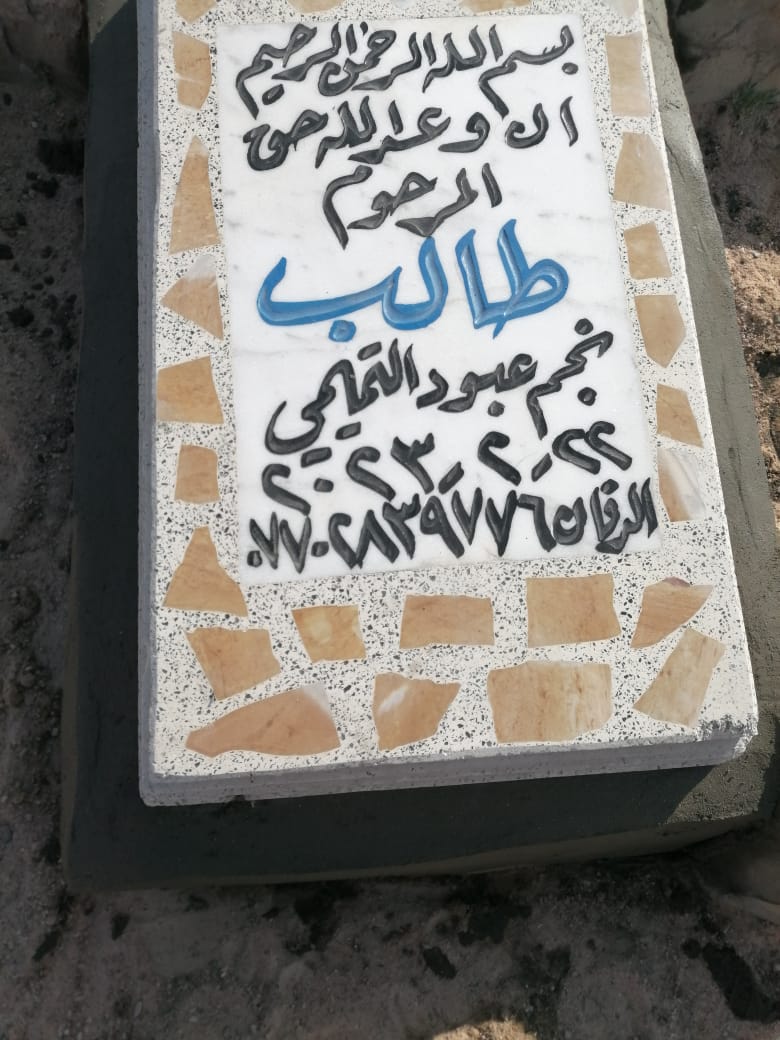 بسم الله الرحمن الرحيم
ان وعد الله حق
المرحوم
طالب
نجم عبود التميمي
٢٢_٢_٢٠٢٣
الدفان ٠٧٧٠٢٨٣٩٧٧٦